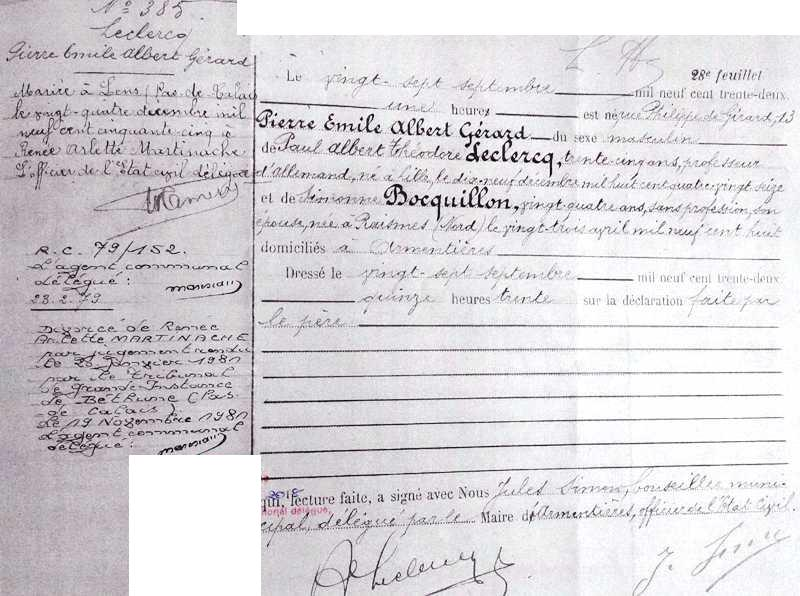 N° 385
Leclercq
Pierre Emile Albert Gérard
Marié à Lens (Pas de Calais
le vingt-quatre décembre mil
neuf cent cinquante-cinq à
Renée Arlette Martinache
L'officier de l'Etat civil délégué
R.C. 79/152.
L'agent communal
délégué:
23.2.79
Divorcé de Renée
Arlette MARTINACHE
par jugement rendu
le 28 janvier 1981
par le tribunal
de Grande Instance
de Béthune (Pas.
de Calais)
Le 19 Novembre 1981
L'agent communal
délégué:
28e feuillet
Le vingt-sept septembre mil neuf cent trente-deux.
une heures est né rue Philippe de Girard, 13
Pierre Emile Albert Gérard du sexe masculin
de Paul Albert Théodore Leclercq, trente-cinq ans, professeur
d'allemand, né à Lille, le dix-neuf décembre mil huit cent quatre-vingt seize
et de Simonne Bocquillon, vingt-quatre ans, sans profession, son
épouse, née à Raismes (Nord) le vingt-trois avril mil neuf cent huit
domiciliés à Armentières
Dressé le vingt-sept septembre mil neuf cent trente-deux.
quinze heures trente sur la déclaration faite par
le père
qui, lecture faite, a signé avec Nous Jules Simon, conseiller muni-
cipal, délégué par le Maire d'Armentières, officier de l'Etat Civil.
A Leclercq
J. Simon